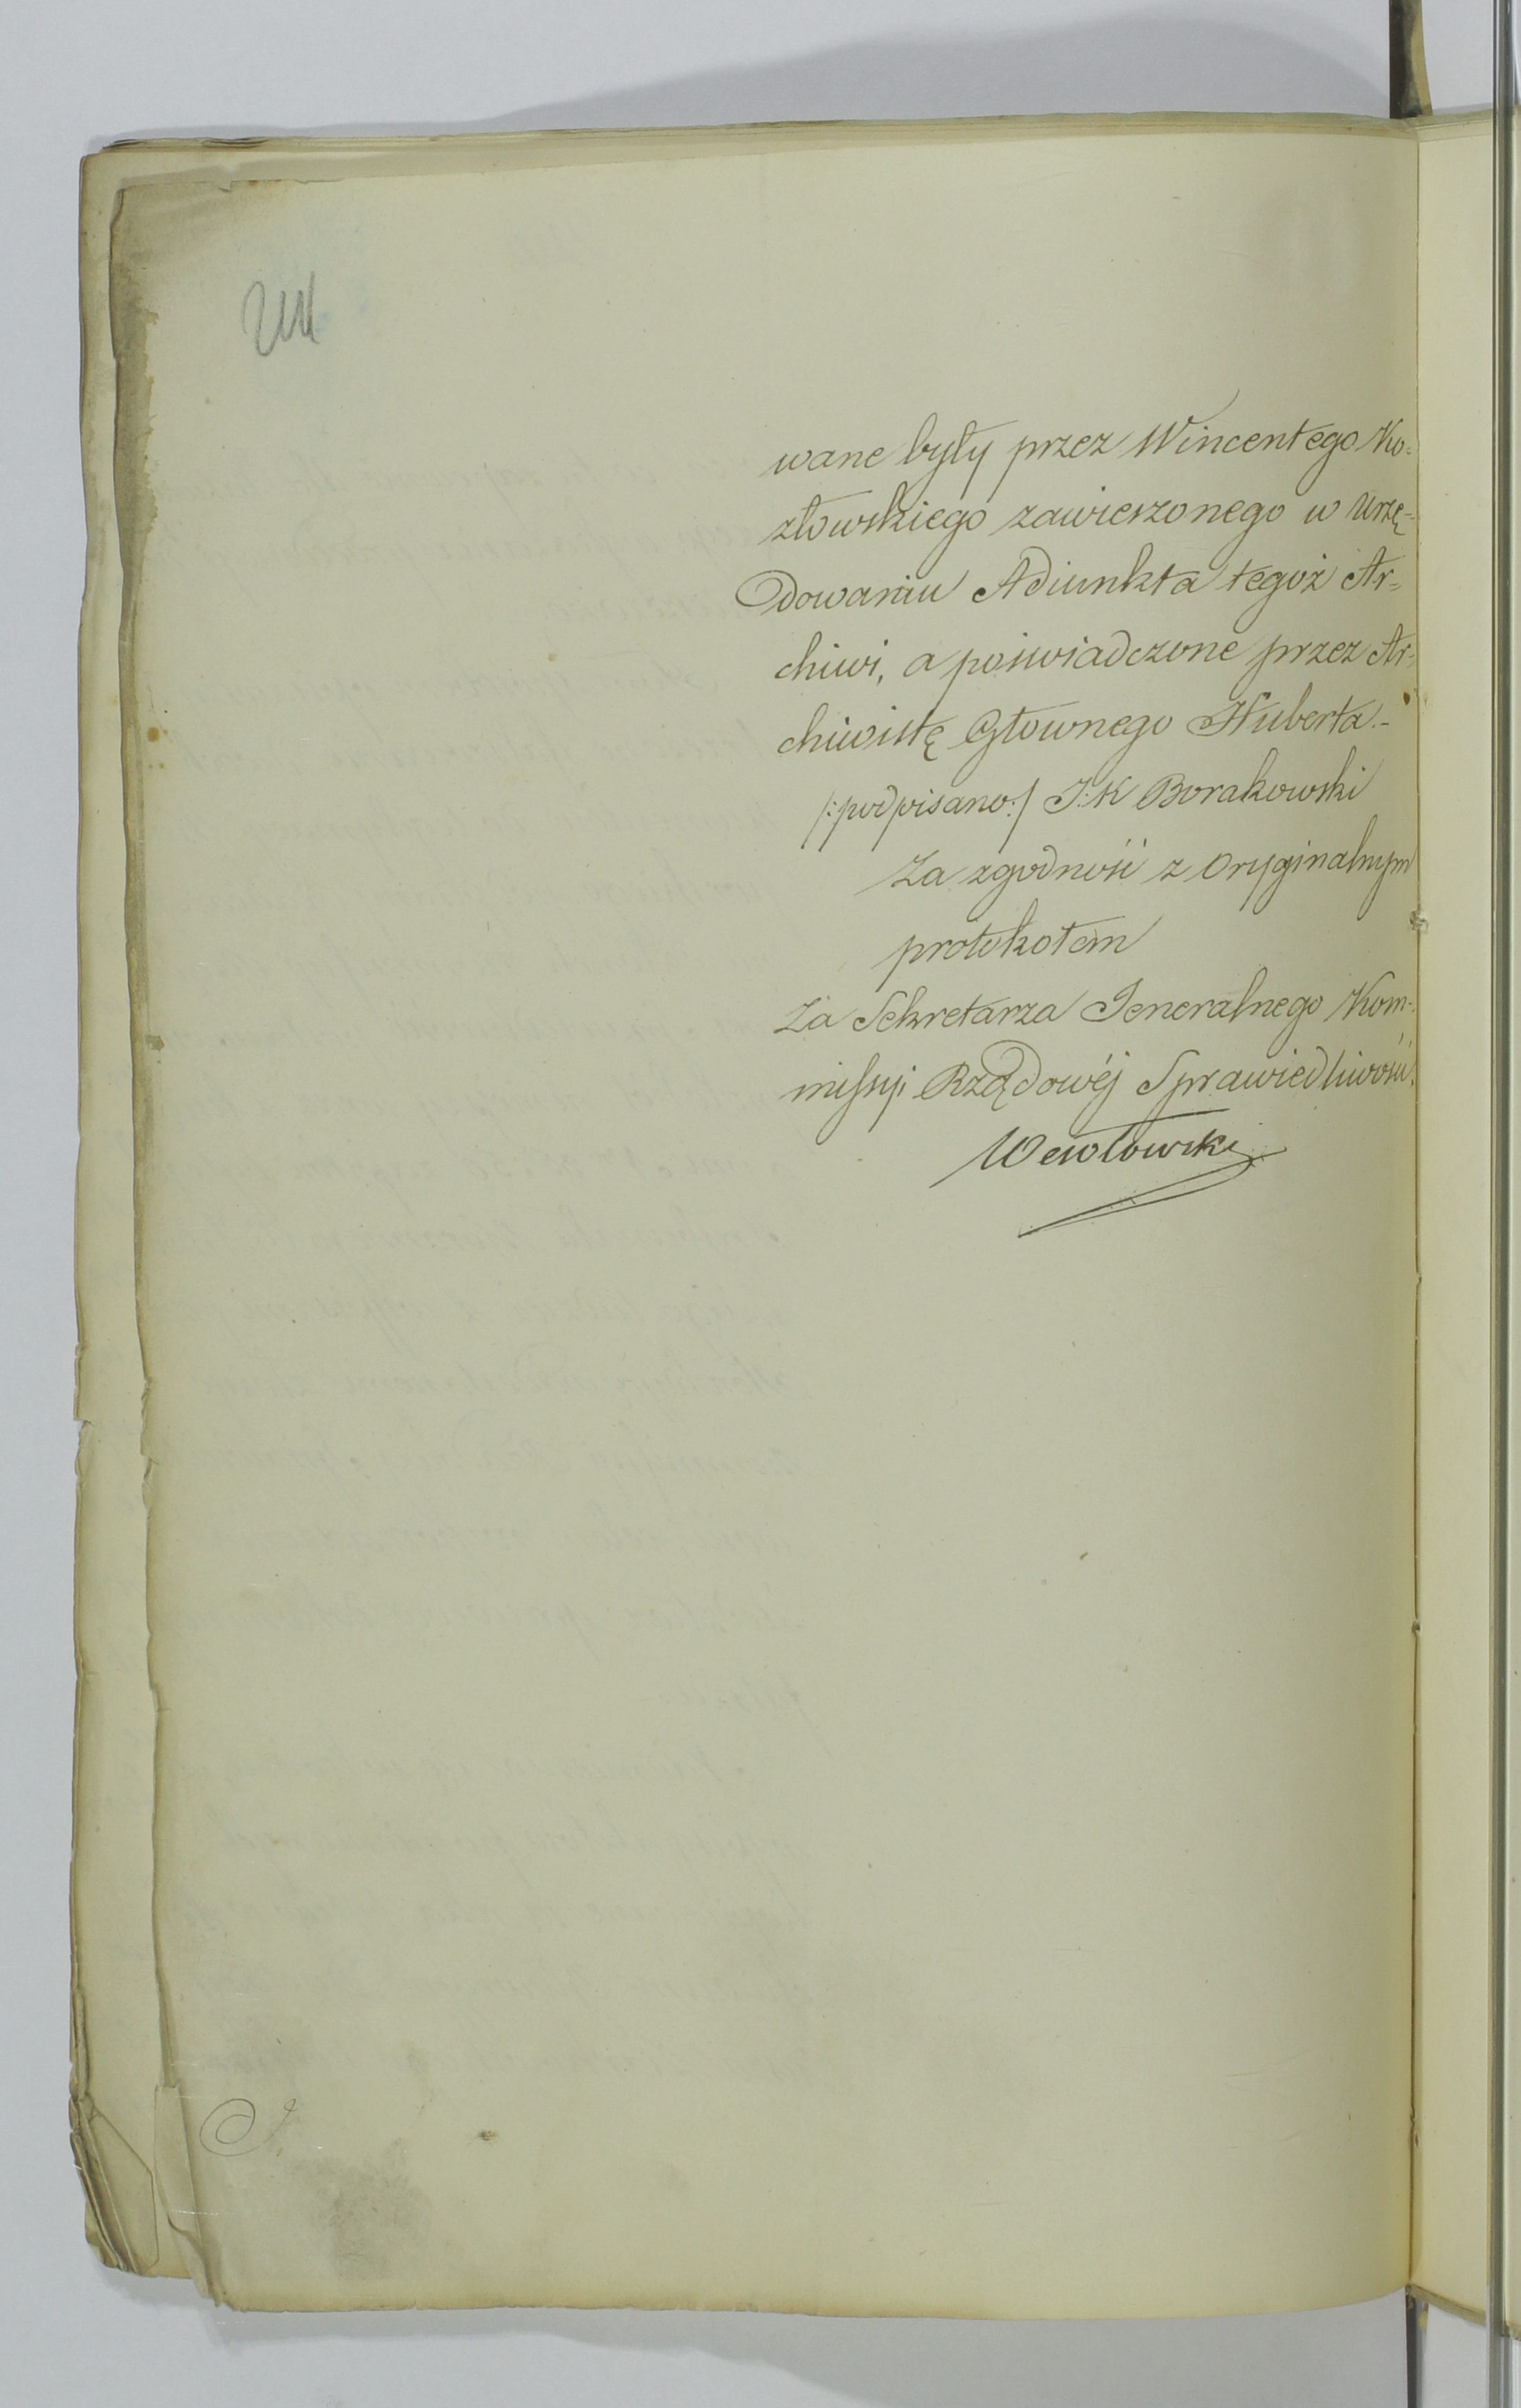 wane były przez Wincentego Ko=
złowskiego zawieszonego w urzę=
dowaniu Adiunkta tegoż Ar=
chiwi, a poświadczone przez Ar=
chiwistę Głownego Huberta.-
/:podpisano:/ J:K Borakowski
Za zgodność z Oryginalnym
protokołem
Za Sekretarza Jeneralnego Kom=
missyi Rządowéj Sprawiedliwości.
Wołowski